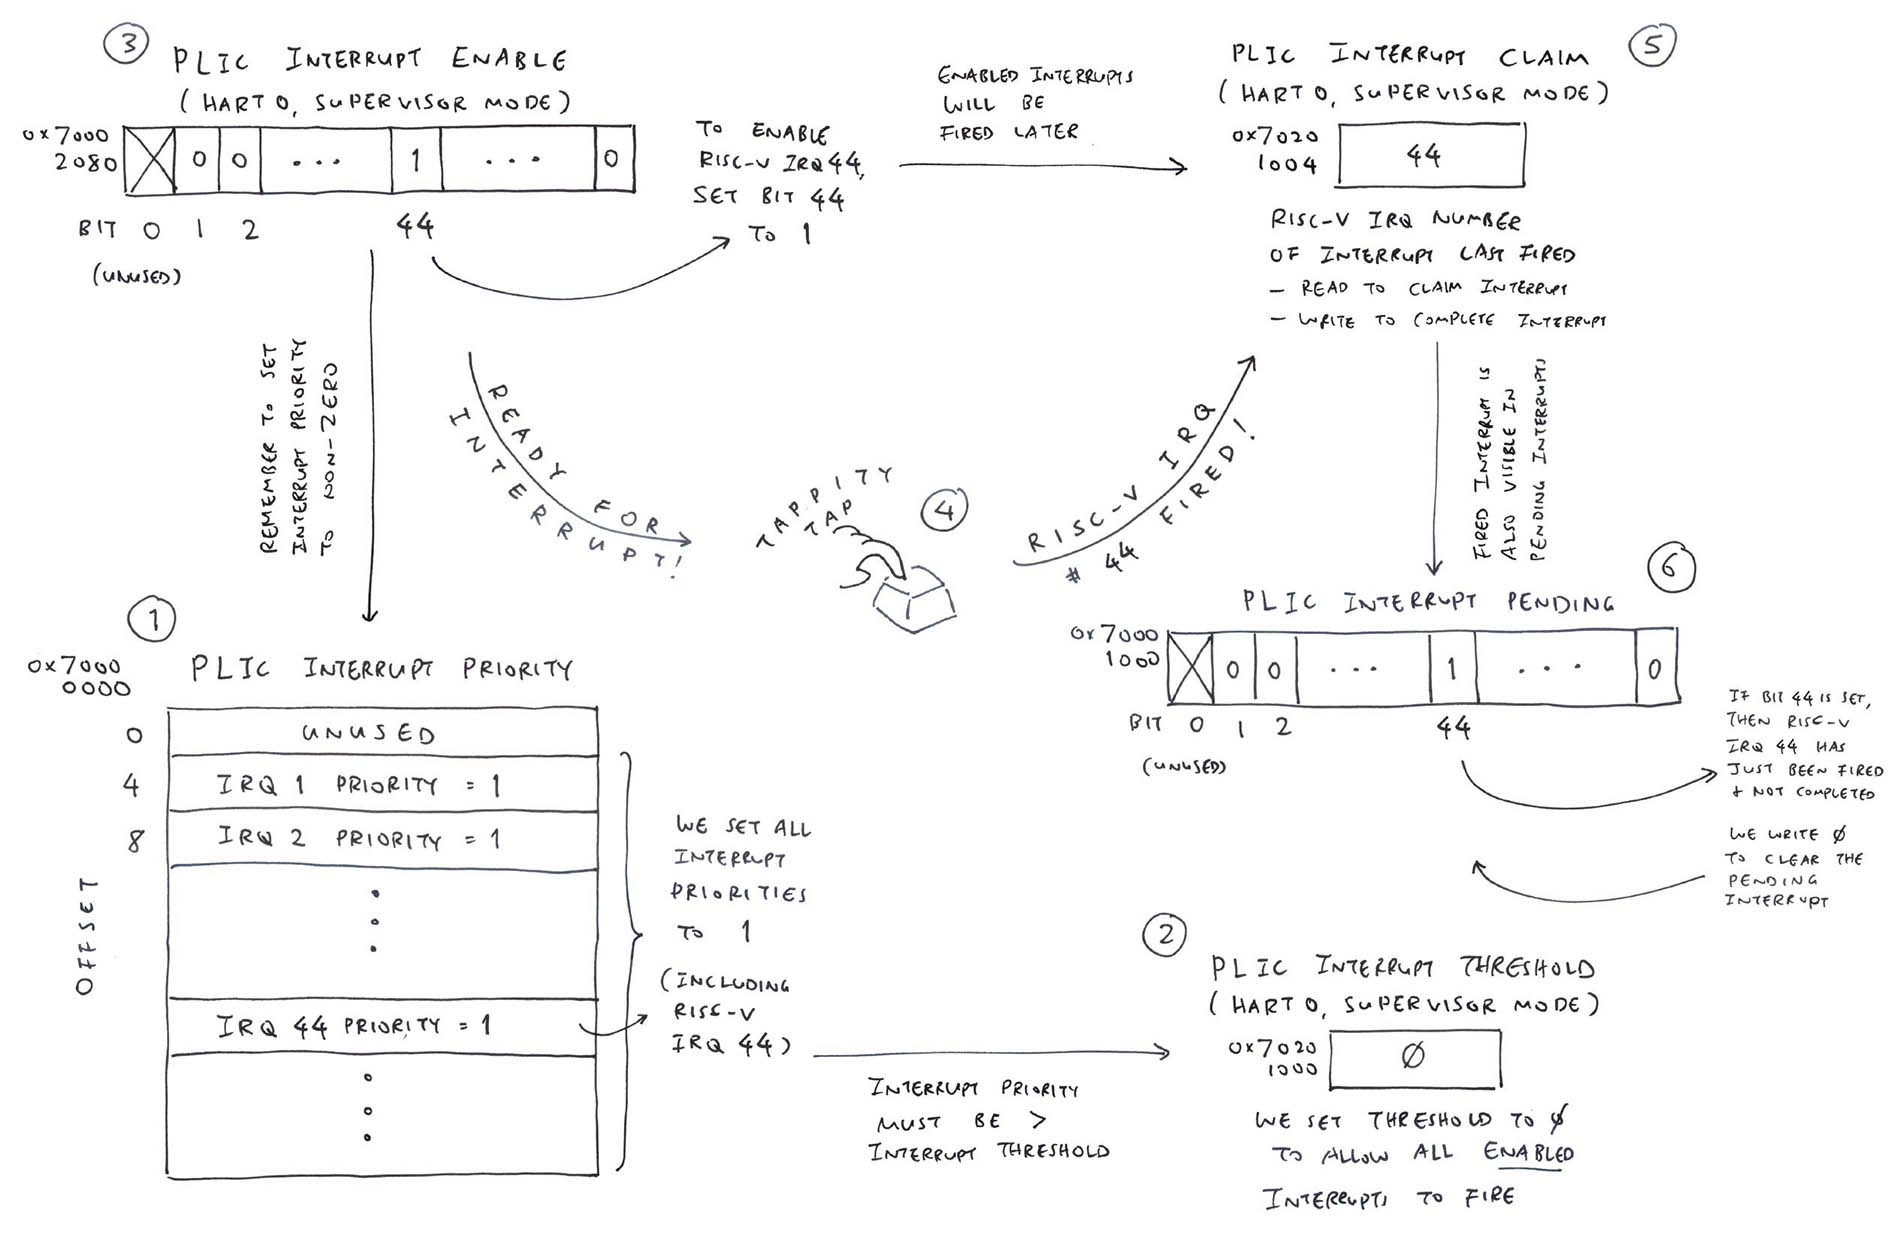 3
PLIC INTERRUPT ENABLE
(HART 0, SUPERVISOR MODE)
0x7000
2080
0 0 ... 1 ... 0
BIT 0 1 2 44
(UNUSED)
TO ENABLE
RISC-V IRQ 44,
SET BIT 44
TO 1
ENABLED INTERRUPTS
WILL BE
FIRED LATER
5
PLIC INTERRUPT CLAIM
(HART 0, SUPERVISOR MODE)
0x7020
1004
44
RISC-V IRQ NUMBER
OF INTERRUPT LAST FIRED
- READ TO CLAIM INTERRUPT
- WRITE TO COMPLETE INTERRUPT
REMEMBER TO SET
INTERRUPT PRIORITY
TO NON-ZERO
READY FOR
INTERRUPT!
TAPPITY
TAP
4
RISC-V IRQ
# 44 FIRED!
FIRED INTERRUPT IS
ALSO VISIBLE IN
PENDING INTERRUPTS
6
PLIC INTERRUPT PENDING
0x7000
1000
0 0 ... 1 ... 0
BIT 0 1 2 44
(UNUSED)
IF BIT 44 IS SET,
THEN RISC-V
IRQ 44 HAS
JUST BEEN FIRED
+ NOT COMPLETED
WE WRITE 0
TO CLEAR THE
PENDING
INTERRUPT
1
0x7000
0000
PLIC INTERRUPT PRIORITY
0 UNUSED
4 IRQ 1 PRIORITY = 1
8 IRQ 2 PRIORITY = 1
OFFSET
IRQ 44 PRIORITY = 1
WE SET ALL
INTERRUPT
PRIORITIES
TO 1
(INCLUDING
RISC-V
IRQ 44)
INTERRUPT PRIORITY
MUST BE >
INTERRUPT THRESHOLD
2
PLIC INTERRUPT THRESHOLD
(HART 0, SUPERVISOR MODE)
0x7020
1000
0
WE SET THRESHOLD TO 0
TO ALLOW ALL ENABLED
INTERRUPTS TO FIRE